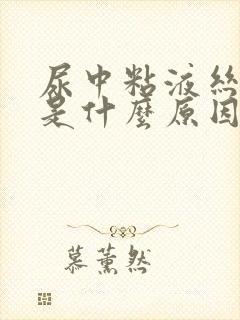 尿中粘液絲
是什麼原因
慕薰然